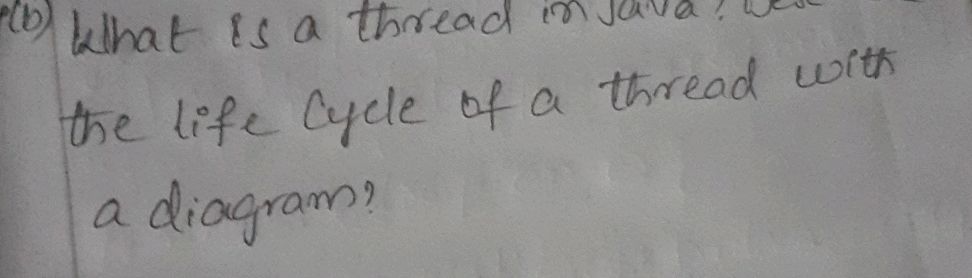 (b) What is a thread in Java?
the life Cycle of a thread with
a diagram?